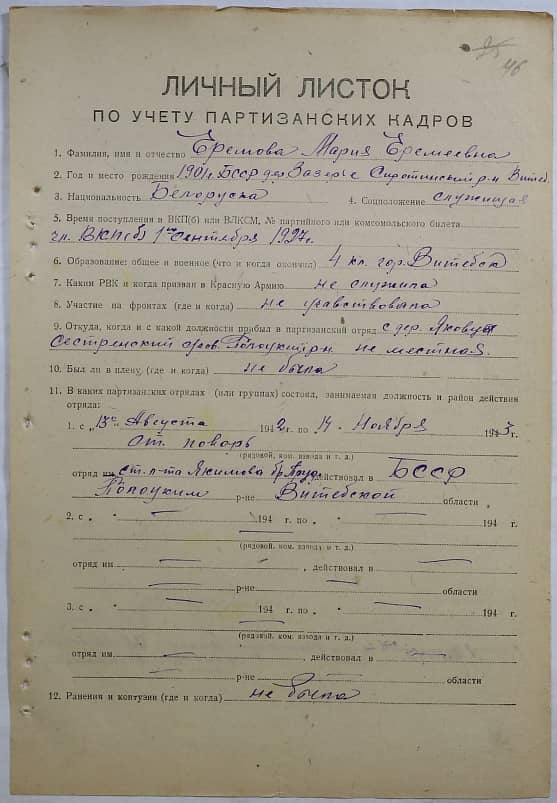 25
46
ЛИЧНЫЙ ЛИСТОК
ПО УЧЕТУ ПАРТИЗАНСКИХ КАДРОВ
1. Фамилия, имя и отчество Еремова Мария Еремеевна
2. Год и место рождения 1901 г. БССР дер Зазерье Сиротинский р-н Витеб.
3. Национальность Белоруска 4. Соцположение служащая
5. Время поступления в ВКП(б) или ВЛКСМ, № партийного или комсомольского билета
чл. ВКП(б) 1го Сентября 1927 г.
6. Образование: общее и военное (что и когда окончил) 4 кл. гор. Витебск
7. Каким РВК и когда призван в Красную Армию не служила
8. Участие на фронтах (где и когда) не участвовала
9. Откуда, когда и с какой должности прибыл в партизанский отряд с дер.
Сестренский Полоцкий р-н не местная.
10. Был ли в плену, (где и когда) не была
11. В каких партизанских отрядах (или группах) состоял, занимаемая должность и район действия
отряда:
1. с „13“ Августа 1942 г. по 14 Ноября 1943 г.
от. поварь
(рядовой, ком. взвода и т. д.)
отряд им ст. л-та Якимова бр. действовал в БССР
Полоцким р-не Витебской области
2. с „ — “ — 194 г. по „ — 194 г.
—
(рядовой, ком. взвода и т. д.)
отряд им — , действовал в —
— р-не — области
3. с „ — “ — 194 г. по „ — 194 г.
—
(рядовой, ком. взвода и т. д.)
отряд им — , действовал в —
— р-не — области
12. Ранения и контузии (где и когда) не была